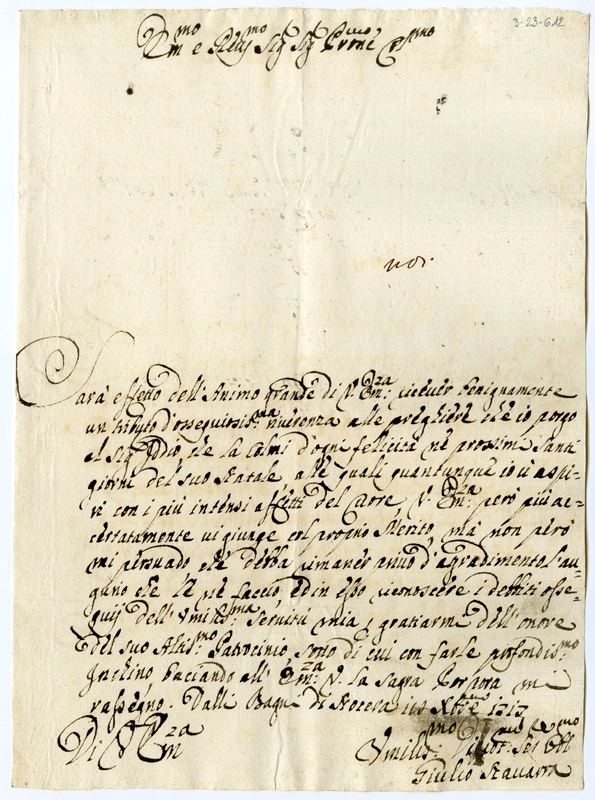 3-23-612
Em.mo e Re.mo Sig.
Sarà effetto dell'Animo grande di V. Em.za: ricever benignamente
un tributo d'ossequiosis.ma riverenza alle preghiere che io porgo
al Sig. Iddio che la colmi d'ogni felicità ne prossimi Santi
giorni del suo Natale, alle quali quantunque io v'aspi-
ri con i più intensi affetti del Cuore, V. Em.za: però più ac-
certatamente vi giunge col proprio Merito, mà non però
mi persuado che debba rimaner privo d'agradimento l'au-
gurio che le ne faccio, ed in esso riconoscere i debiti osse-
quij dell'Umilis.ma: Servitù mia, e gratiarmi dell'onore
del suo Altis.mo Patrocinio, sotto di cui con farle profondis.mo
Inchino baciando all'Em.za: V. la Sagra Porpora mi
rassegno. Dalli Bagni di Nocera Xbre 1717
Di V. Em.za
Umilis.mo
Giulio